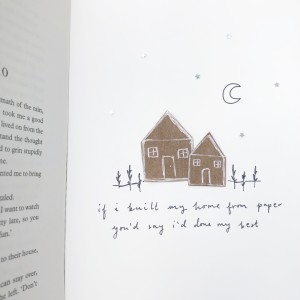 o
math of the rain,
took me a good
lived on from the
and the thought
ed to grin stupidly
me.
nted me to bring
zled.
I want to watch
my late, so you
fun.'
to their house,
can stay over,
he left. 'Don't
if i built my home from paper
you'd say i'd done my best